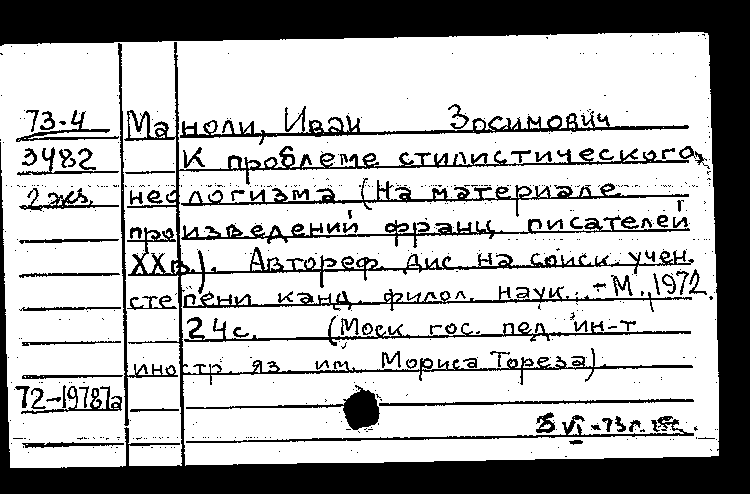 73-4 Маноли, Иван Зосимович
3482 К проблеме стилистического
2 экз. неологизма (На материале
произведений франц. писателей
XX в.). Автореф. дис. на соиск. учен.
степени канд. филол. наук. - М., 1972.
24 с. (Моск. гос. пед. ин-т
иностр. яз. им. Мориса Тореза).
72-19787а
VI-73